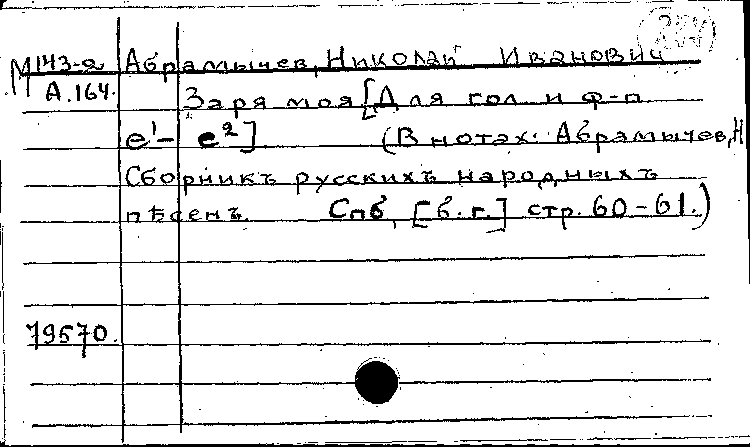 М143-а Абрамычев, Николай Иванович
А.164. Заря моя [Для гол. и ф-п.
e¹ - e²] (В нотах: Абрамычев, Н
Сборникъ русскихъ народныхъ
пѣсенъ. Спб, [б.г.] стр. 60-61.)
79570.